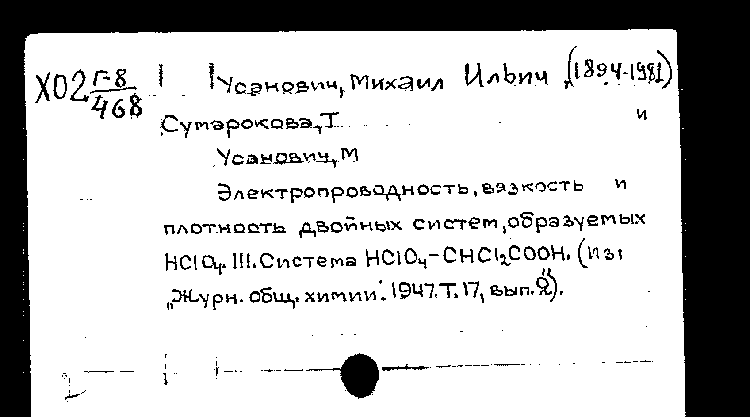 Х02 Г-8/468 Усанович, Михаил Ильич (1894-1981)
Сумарокова, Т и
Усанович, М
Электропроводность, вязкость и
плотность двойных систем, образуемых
HClO4. III. Система HClO4-CHCl2COOH. (Из:
„Журн. общ. химии". 1947. Т. 17, вып. 2).